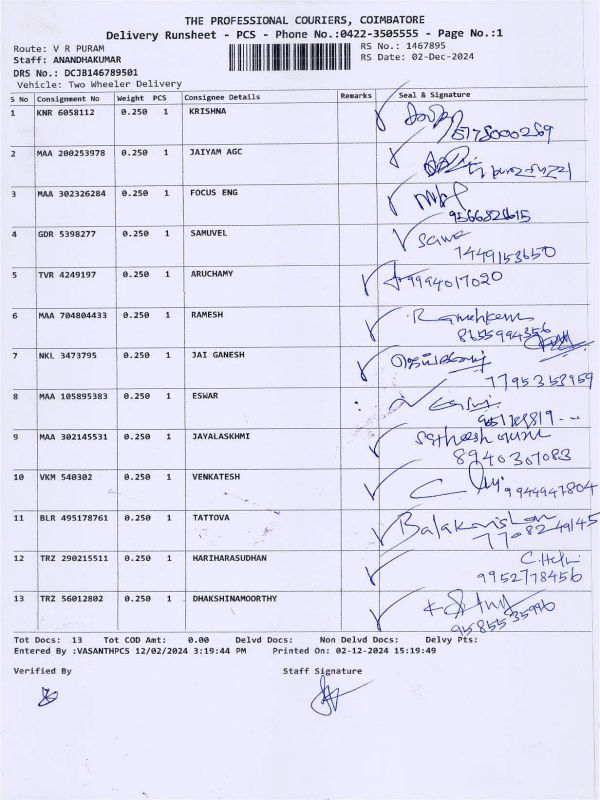 THE PROFESSIONAL COURIERS, COIMBATORE
Delivery Runsheet - PCS - Phone No.:0422-3505555 - Page No.:1
Route: V R PURAM RS No.: 1467895
Staff: ANANDHAKUMAR RS Date: 02-Dec-2024
DRS No.: DCJB146789501
Vehicle: Two Wheeler Delivery
S No Consignment No Weight PCS Consignee Details Remarks Seal & Signature
1 KNR 6058112 0.250 1 KRISHNA
2 MAA 200253978 0.250 1 JAIYAM AGC
3 MAA 302326284 0.250 1 FOCUS ENG
4 GDR 5398277 0.250 1 SAMUVEL
7449153650
5 TVR 4249197 0.250 1 ARUCHAMY 9994017020
6 MAA 704804433 0.250 1 RAMESH
8655994356
7 NKL 3473795 0.250 1 JAI GANESH
7795353959
8 MAA 105895383 0.250 1 ESWAR
9 MAA 302145531 0.250 1 JAYALASKHMI
8940307083
10 VKM 540302 0.250 1 VENKATESH 9944947804
11 BLR 495178761 0.250 1 TATTOVA Balakrishnan
7708249145
12 TRZ 290215511 0.250 1 HARIHARASUDHAN
9952778456
13 TRZ 56012802 0.250 1 DHAKSHINAMOORTHY
Tot Docs: 13 Tot COD Amt: 0.00 Delvd Docs: Non Delvd Docs: Delvy Pts:
Entered By :VASANTHPCS 12/02/2024 3:19:44 PM Printed On: 02-12-2024 15:19:49
Verified By Staff Signature